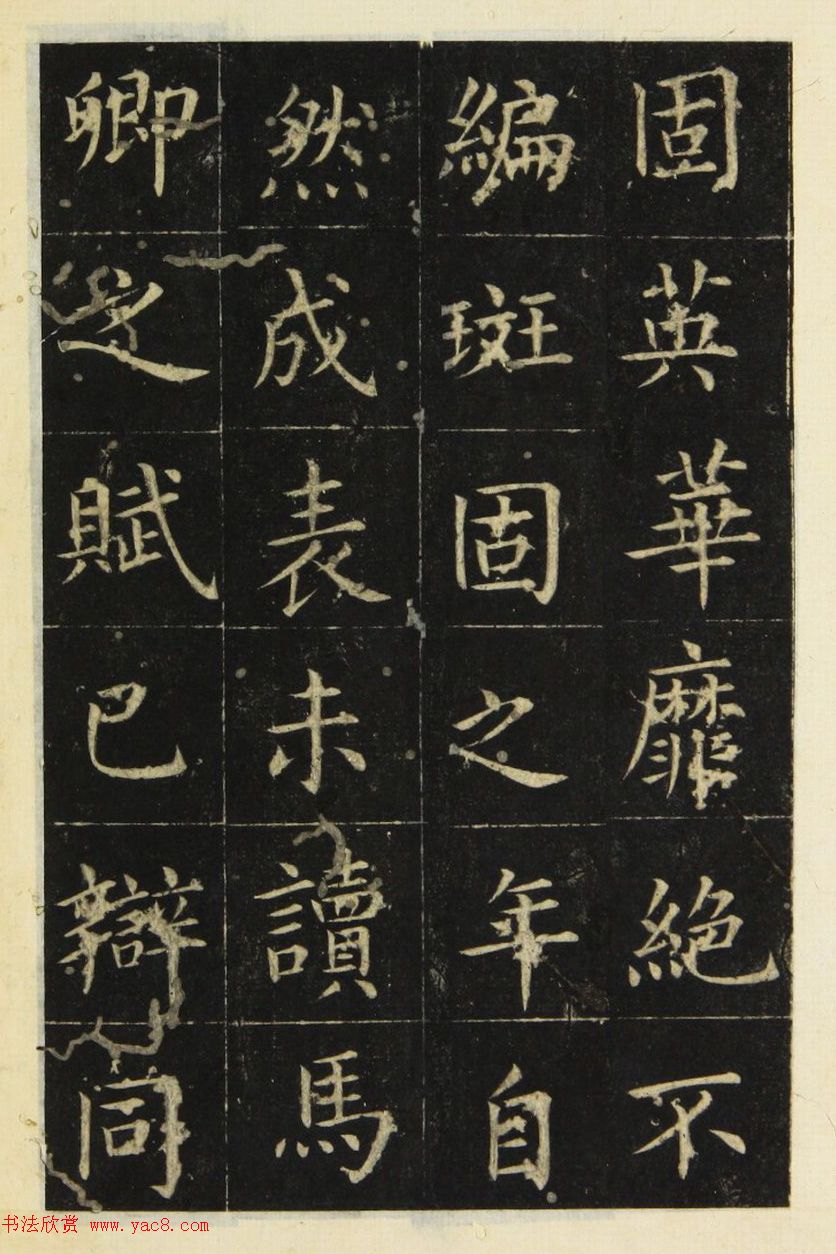 固英華靡絶不
編斑固之年自
然成表未讀馬
卿之賦已辯同
书法欣赏 www.yac8.com